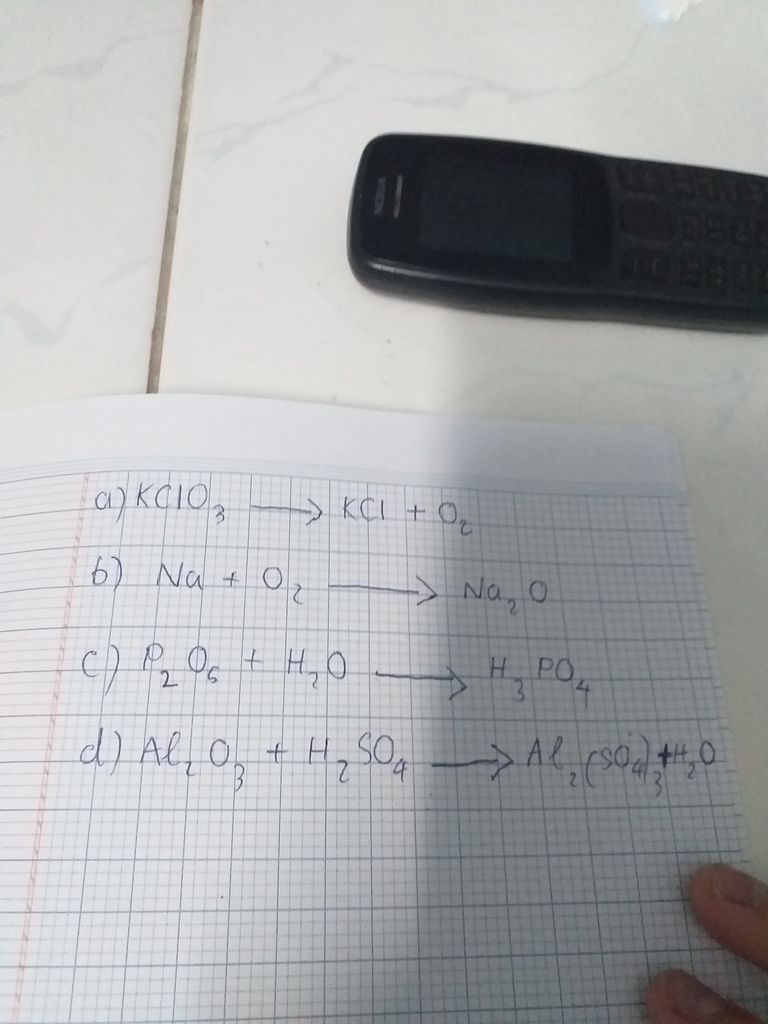 a) KClO₃ ⟶ KCl + O₂
b) Na + O₂ ⟶ Na₂O
c) P₂O₅ + H₂O ⟶ H₃PO₄
d) Al₂O₃ + H₂SO₄ ⟶ Al₂(SO₄)₃ + H₂O